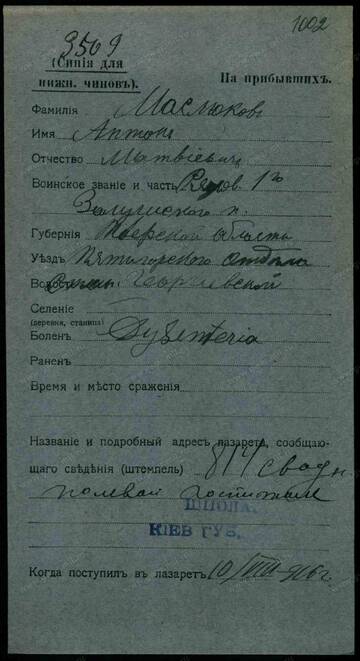 1002
3569
(Синія для
нижн. чиновъ).
На прибывшихъ.
Фамилія Маслюковъ
Имя Антонъ
Отчество Матвіевичъ
Воинское званіе и часть Рядов. 1го
п.
Губернія Терской области
Уѣздъ Пятигорскаго отдѣла
Волость Георгіевской
Селеніе
(деревня, станица)
Боленъ Dysenteria
Раненъ
Время и мѣсто сраженія
Названіе и подробный адресъ лазарета, сообщаю-
щаго свѣдѣнія (штемпель) 814 сводн
полевой госпиталь
ШПОЛА
КІЕВ ГУБ.
Когда поступилъ въ лазаретъ 10/VIII-916 г.